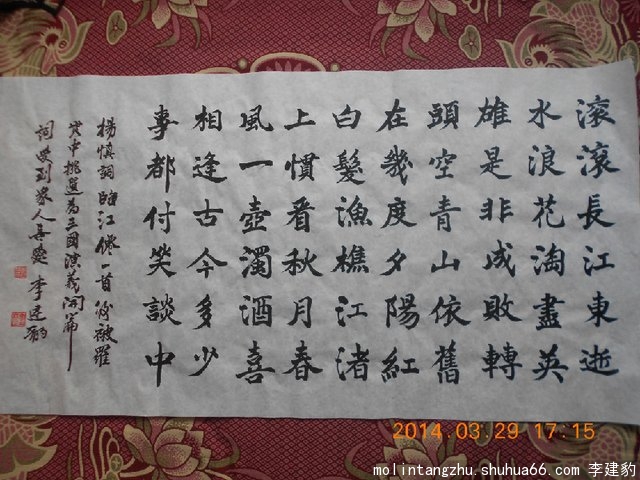 滾滾長江東逝
水浪花淘盡英
雄是非成敗轉
頭空青山依舊
在幾度夕陽紅
白髮漁樵江渚
上慣看秋月春
風一壺濁酒喜
相逢古今多少
事都付笑談中
楊慎詞臨江僊一首後被羅
貫中挑選為三國演義開篇
詞受到眾人喜愛 李建豹
2014.03.29 17:15
molintangzhu.shuhua66.com 李建豹